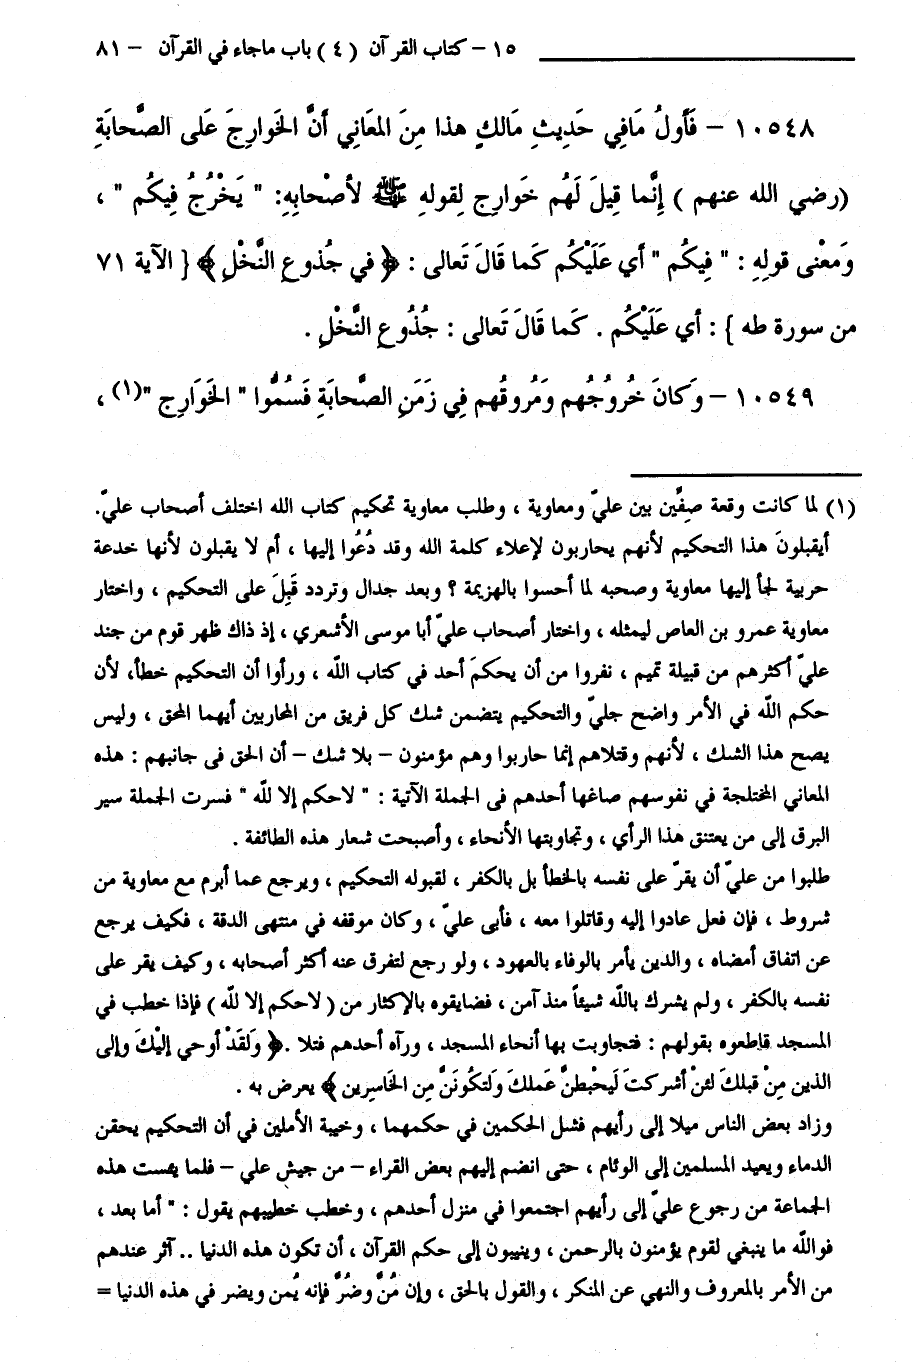 ١٥ – كتاب القرآن (٤) باب ماجاء في القرآن – ٨١
١٠٥٤٨ – فَأَولُ مَافِي حَدِيثِ مَالكٍ هذا مِنَ المعَانِي أَنَّ الخَوارِجَ عَلى الصَّحابَةِ
(رضي الله عنهم ) إِنَّما قِيلَ لَهُم خَوارِج لِقولهِ ﷺ لأصْحابِهِ: " يَخْرُجُ فِيكُم " ،
وَمَعْنى قولِهِ : " فِيكُم " أي عَلَيْكُم كَما قالَ تَعالى : ﴿ في جُذوعِ النَّخْلِ ﴾ { الآية ٧١
من سورة طه } : أي عَلَيْكُم . كَما قَالَ تَعالى : جُذُوعِ النَّخْلِ .
١٠٥٤٩ – وَكانَ خُرُوجُهُم وَمَرُوقُهُم فِي زَمَنِ الصَّحابَةِ فَسُمُّوا " الخَوَارِج "(١) ،
(١) لما كانت وقعة صِفِّين بين عليّ ومعاوية ، وطلب معاوية تحكيم كتاب الله اختلف أصحاب عليّ.
أيقبلونَ هذا التحكيم لأنهم يحاربون لإعلاء كلمة الله وقد دُعُوا إليها ، أم لا يقبلون لأنها خدعة
حربية لجأ إليها معاوية وصحبه لما أحسوا بالهزيمة ؟ وبعد جدال وتردد قَبِلَ على التحكيم ، واختار
معاوية عمرو بن العاص ليمثله ، واختار أصحاب عليّ أبا موسى الأشعري ، إذ ذاك ظهر قوم من جند
عليّ أكثرهم من قبيلة تميم ، نفروا من أن يحكمَ أحد في كتاب اللّه ، ورأوا أن التحكيم خطأ، لأن
حكم اللّه في الأمر واضح جليّ والتحكيم يتضمن شك كل فريق من المحاربين أيهما المحق ، وليس
يصح هذا الشك ، لأنهم وقتلاهم إنما حاربوا وهم مؤمنون – بلا شك – أن الحق فى جانبهم : هذه
المعاني المختلجة في نفوسهم صاغها أحدهم فى الجملة الآتية : " لاحكم إلا للّه " فسرت الجملة سير
البرق إلى من يعتنق هذا الرأي ، وتجاوبتها الأنحاء ، وأصبحت شعار هذه الطائفة .
طلبوا من عليّ أن يقرّ على نفسه بالخطأ بل بالكفر ، لقبوله التحكيم ، ويرجع عما أبرم مع معاوية من
شروط ، فإن فعل عادوا إليه وقاتلوا معه ، فأبى عليّ ، وكان موقفه في منتهى الدقة ، فكيف يرجع
عن اتفاق أمضاه ، والدين يأمر بالوفاء بالعهود ، ولو رجع لتفرق عنه أكثر أصحابه ، وكيف يقر على
نفسه بالكفر ، ولم يشرك باللّه شيئاً منذ آمن ، فضايقوه بالإكثار من ( لاحكم إلا للّه ) فإذا خطب في
المسجد قاطعوه بقولهم : فتجاوبت بها أنحاء المسجد ، ورآه أحدهم فتلا .﴿ وَلقَدْ أوحي إليْكَ وإلى
الذين مِنْ قبلكَ لئنْ أشركتَ لَيحْبطنَّ عَملكَ وَلتكُونَنَّ مِن الخَاسِرين ﴾ يعرض به .
وزاد بعض الناس ميلا إلى رأيهم فشل الحكمين في حكمهما ، وخيبة الأملين في أن التحكيم يحقن
الدماء ويعيد المسلمين إلى الوئام ، حتى انضم إليهم بعض القراء – من جيش علي – فلما يئست هذه
الجماعة من رجوع عليّ إلى رأيهم اجتمعوا في منزل أحدهم ، وخطب خطيبهم يقول : " أما بعد ،
فواللّه ما ينبغي لقوم يؤمنون بالرحمن ، وينيبون إلى حكم القرآن ، أن تكون هذه الدنيا .. آثر عندهم
من الأمر بالمعروف والنهي عن المنكر ، والقول بالحق ، وإن مُنَّ وضُرَّ فإنه يُمن ويضر في هذه الدنيا =